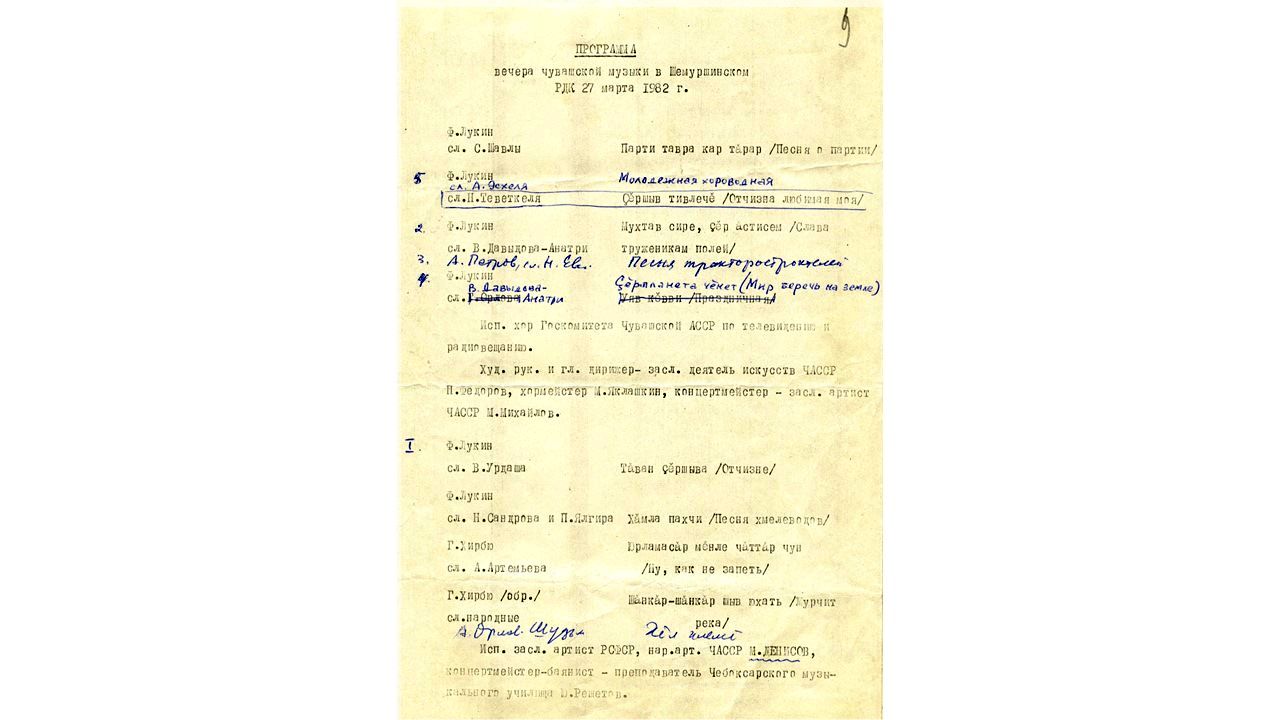 9
ПРОГРАММА
вечера чувашской музыки в Шемуршинском
РДК 27 марта 1982 г.
Ф.Лукин
сл. С.Шавлы Парти тавра кар тӑрар /Песня о партии/
5 Ф.Лукин Молодежная хороводная
сл. А. Эсхеля
сл.Н.Теветкеля Ҫӗршыв тивлечӗ /Отчизна любимая моя/
2. Ф.Лукин Мухтав сире, ҫӗр ӑстисем /Слава
сл. В.Давыдова-Анатри труженикам полей/
3. А. Петров, сл. Н. Евс. Песня тракторостроителей
4. Ф.Лукин Ҫӗрпланета чӗнет (Мир беречь на земле)
В. Давыдова-
сл. Г.Орлова Анатри Уяв кӗвви /Праздничная/
Исп. хор Госкомитета Чувашской АССР по телевидению и
радиовещанию.
Худ. рук. и гл. дирижер- засл. деятель искусств ЧАССР
Н.Федоров, хормейстер М.Яклашкин, концертмейстер - засл. артист
ЧАССР М.Михайлов.
I. Ф.Лукин
сл. В.Урдаша Тӑван ҫӗршыва /Отчизне/
Ф.Лукин
сл. Н.Сандрова и П.Ялгира Хӑмла пахчи /Песня хмелеводов/
Г.Хирбю Юрламасӑр мӗнле чӑттӑр чун
сл. А.Артемьева /Ну, как не запеть/
Г.Хирбю /обр./ Шӑнкӑр-шӑнкӑр шыв юхать /Журчит
сл.народные река/
А. Орлов-Шузьм Хӗл илемӗ
Исп. засл. артист РСФСР, нар.арт. ЧАССР М.ДЕНИСОВ,
концертмейстер-баянист - преподаватель Чебоксарского музы-
кального училища Ю.Решетов.